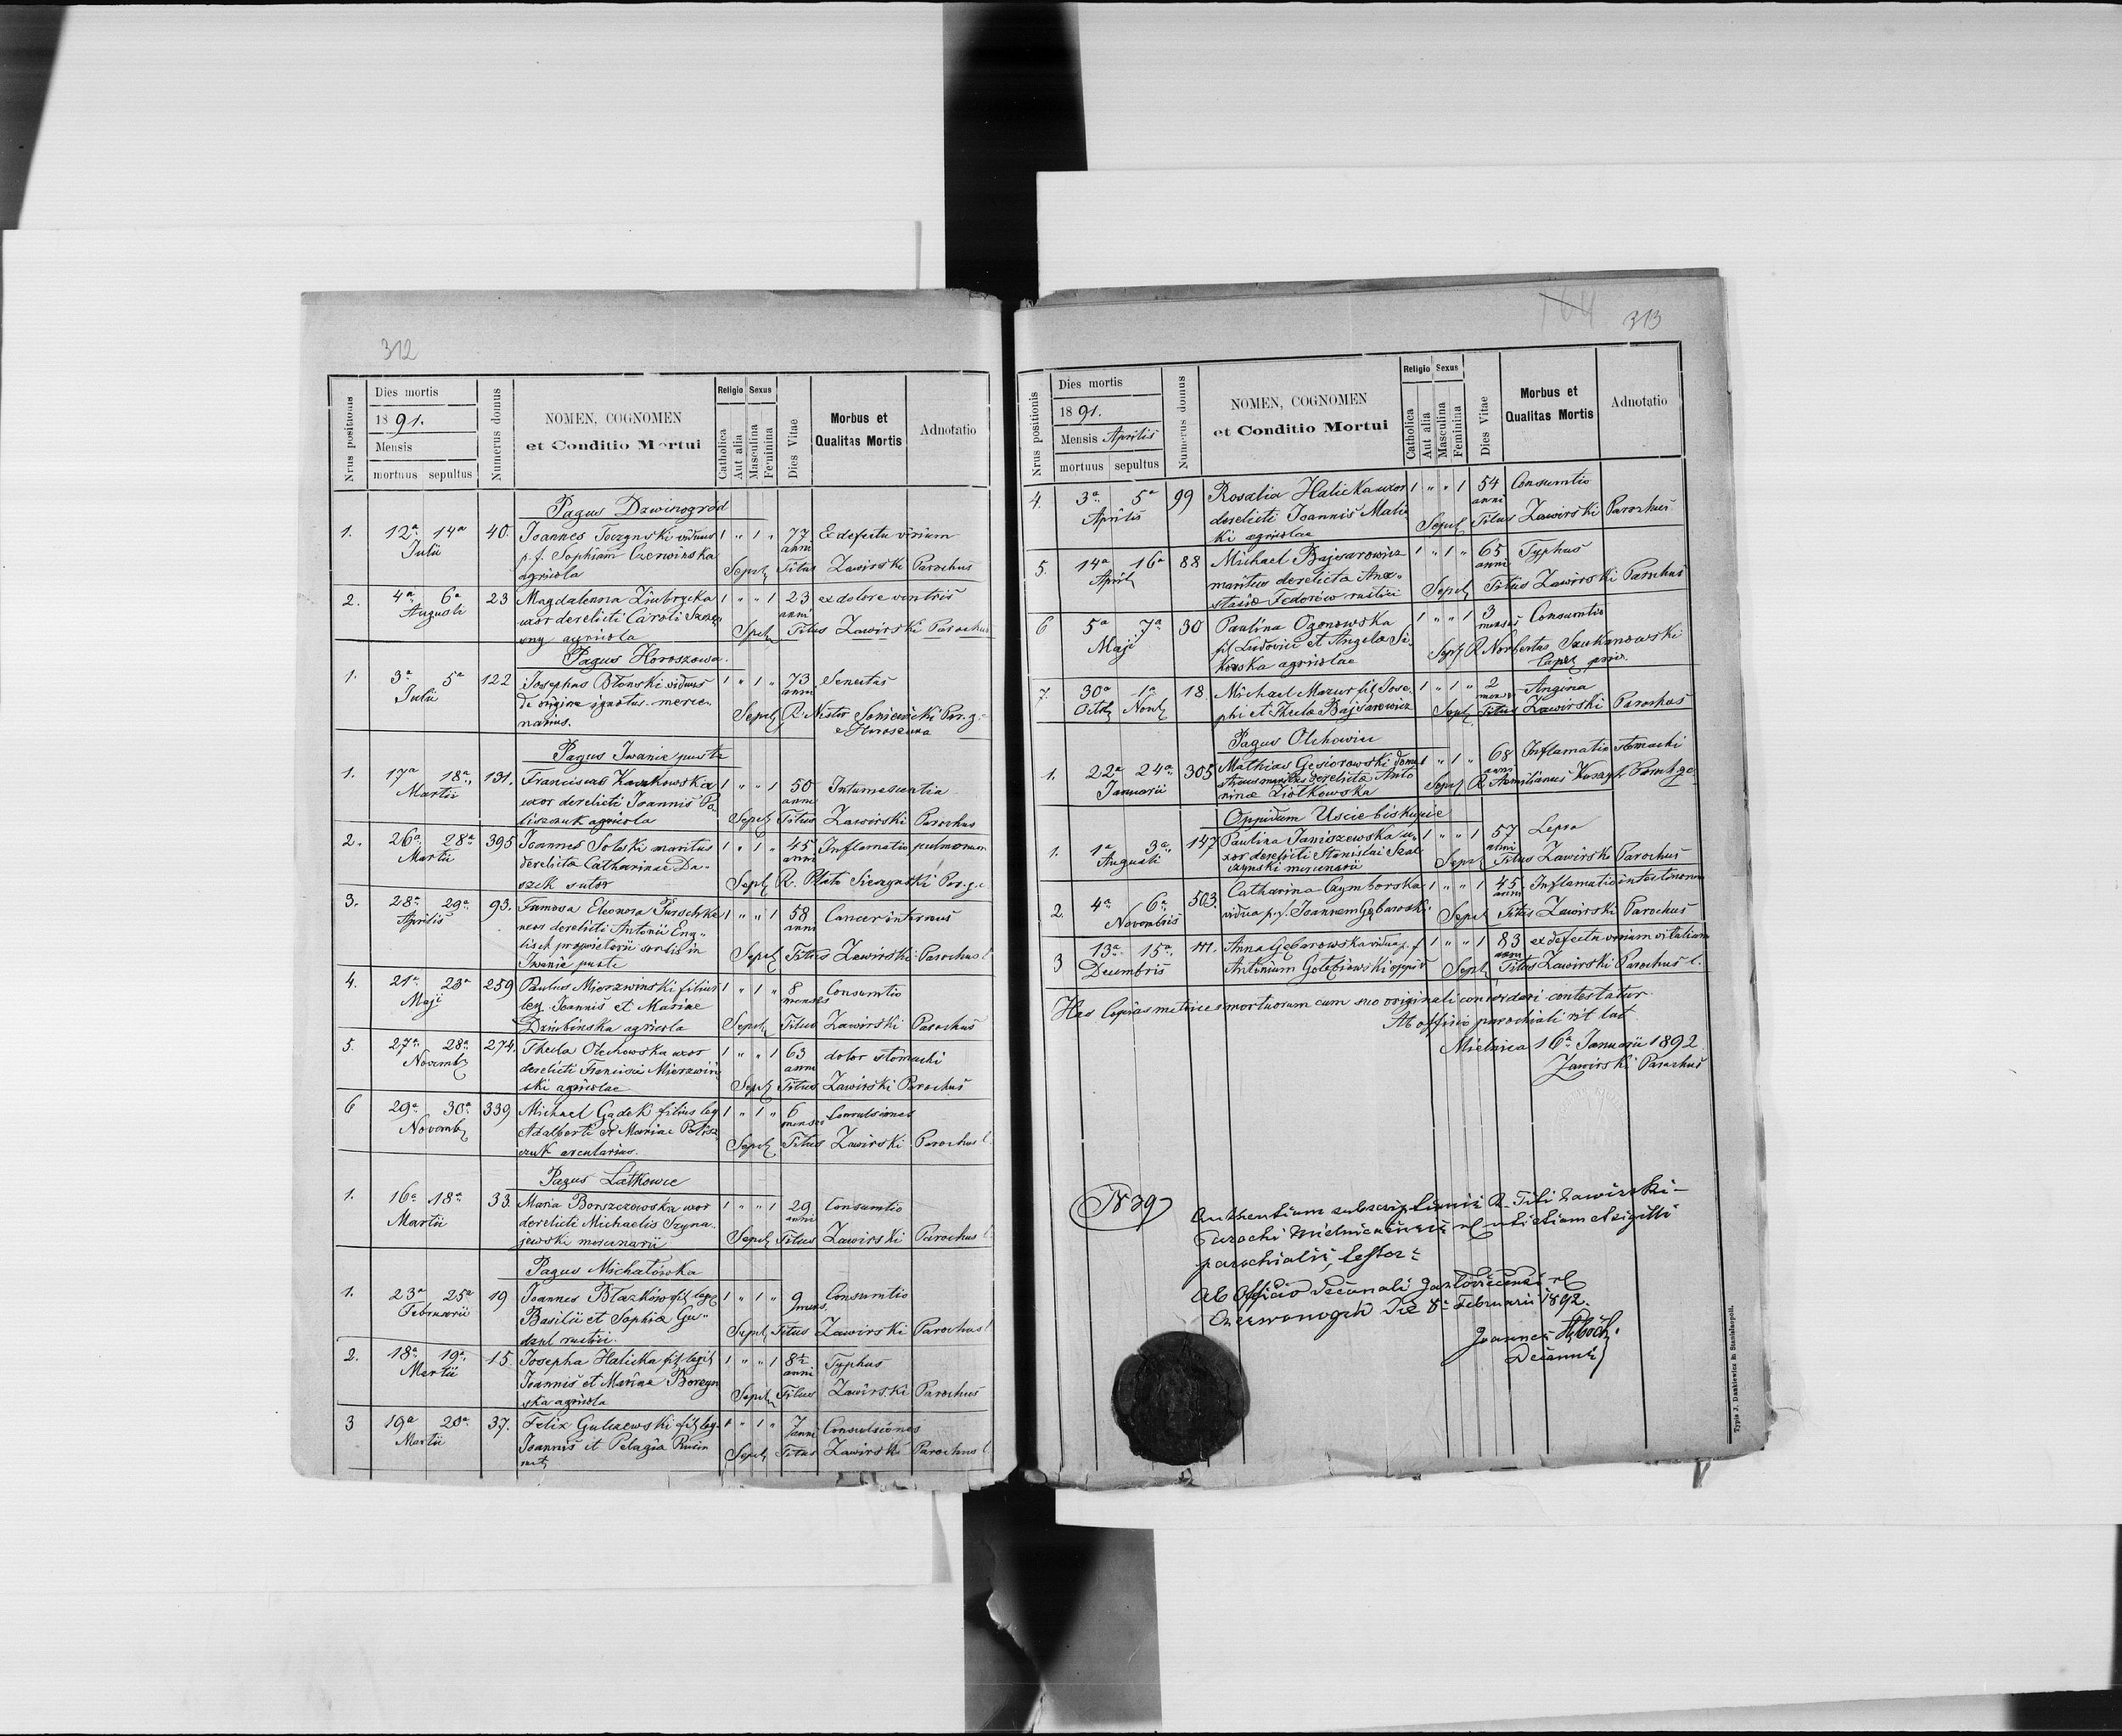 312
Nrus positionis
Dies mortis
1891.
Mensis
mortuus sepultus
Numerus domus
NOMEN, COGNOMEN
et Conditio Mortui
Religio Sexus
Catholica
Aut alia
Masculina
Feminina
Dies Vitae
Morbus et
Qualitas Mortis
Adnotatio
Pagus Dzwinogród
1. 12a 14a 40. Joannes Toczynski viduus 1 " 1 " 77 Ex defectu virium
Julii p. f. Sophiam Czerwinska anni
agricola Sepel Titus Zawirski Parochus
2. 4a 6a 23 Magdalenna 1 " " 1 23 ex dolore ventris
Augusti uxor derelicti Caroli anni
agricola Titus Zawirski Parochus
Pagus Horoszowa.
1. 3a 5a 122 Josephus Błonski viduus 1 " 1 " 73 Senectus
Julii de origine ignotus merce- anni
narius. Sepel R. Nestor Par. g.
e Horoszowa
Pagus Iwanie puste
1. 17a 18a 131. Francisca 1 " " 1 50 Intumescentia
Martii uxor derelicti Joannis Po- anni
liszczuk agricola Sepel Titus Zawirski Parochus
2. 26a 28a 395 Joannes Solski maritus 1 " 1 " 45 Inflamatio pulmonum
Martii derelicta Catharinae Da- anni
szek sutor Sepel R. Plato Par. g.
3. 28a 29a 93. Famosa Eleonora 1 " " 1 58 Cancer internus
Aprilis derelicti Antonii Eng- anni
lisch proprietarii sortis in Sepel Titus Zawirski Parochus l.
Iwanie puste
4. 21a 23a 259 Paulus Mierzwinski filius 1 " 1 " 8 Consumtio
Maji leg. Joannis et Mariae menses
Dziubinska agricola Sepel Titus Zawirski Parochus
5. 27a 28a 274. Thecla Olechowska uxor 1 " " 1 63 dolor stomachi
Novemb derelicti Francisci Mierzwin- anni
ski agricolae Sepel Titus Zawirski Parochus
6 29a 30a 339 Michael Gądek filius leg 1 " 1 " 6 Convulsiones
Novemb Adalberti et Mariae Polisz- menses
czuk arcularius. Sepel Titus Zawirski Parochus l.
Pagus Latkowce
1. 16a 18a 33. Maria Borszczowska uxor 1 " " 1 29 Consumtio
Martii derelicti Michaelis Szyna- anni
jewski mercenarii Sepel Titus Zawirski Parochus l.
Pagus Michałówka
1. 23a 25a 19 Joannes Błazków fil leg 1 " 1 " 9 Consumtio
Februarii Basilii et Sophia Gu- mens.
dzul rustici. Sepel Titus Zawirski Parochus l
2. 18a 19a 15. Josepha Halicka fil legit 1 " " 1 8½ Typhus
Martii Joannis et Marina anni
ska agricola Sepel Titus Zawirski Parochus
3 19a 20a 37. Felix fil leg. 1 " 1 " 7 Convulsiones
Martii Joannis et Pelagia Rusin anni
Sepel Titus Zawirski Parochus l
164 313
Nrus positionis
Dies mortis
1891.
Mensis Aprilis
mortuus sepultus
Numerus domus
NOMEN, COGNOMEN
et Conditio Mortui
Religio Sexus
Catholica
Aut alia
Masculina
Feminina
Dies Vitae
Morbus et
Qualitas Mortis
Adnotatio
4. 3a 5a 99 Rosalia Halicka uxor 1 " " 1 54 Consumtio
Aprilis derelicti Joannis Malic- anni
ki agricolae Sepel Titus Zawirski Parochus
5. 14a 16a 88 Michael Bajsarowicz 1 " 1 " 65 Typhus
April maritus derelicta Ana- anni
stasia Fedorów rustici Sepel Titus Zawirski Parochus
6 5a 7a 30 Paulina Ogonowska 1 " " 1 3 Consumtio
Maji fil Ludovici et Angela Si- menses
korska agricolae Sepel R. Norbertus Szukanowski
7. 30a 1a 18. Michael Mazur fil Jose- 1 " 1 " 2 Angina
Octb Novb phi et Thecla Bajsarowicz menses Sepel Titus Zawirski Parochus
Pagus Olchowiec
1. 22a 24a 305 Mathias Gesiorowski 1 " 1 " 68 Inflamatio stomachi
Januarii derelicta Anto- anni
ninae Ziółkowska Sepel R Aemilianus
Oppidum Uscie biskupie
1. 1a 3a 147 Paulina Janiszewska u- 1 " " 1 57 Lepra
Augusti xor derelicti Stanislai anni
mercenarii Sepel Titus Zawirski Parochus
2. 4a 6a 503. Catharina Czymborska 1 " " 1 45 Inflamatio intestinorum
Novembris vidua p. f. Joannem Gębarowski anni Sepel Titus Zawirski Parochus
3 13a 15a Anna Gębarowska vidua p. f. 1 " " 1 83 ex defectu virium vitalium
Decembris Antonium Gołębiowski anni Sepel Titus Zawirski Parochus l.
Has copias metrices mortuorum cum suo originali concordari contestatur.
Ab officio parochiali rit lat
Mielnica 16a Januarii 1892.
Zawirski Parochus
N 39
Authenticam subscriptionis R. Titi Zawirski
Parochi Mielnicensis et sigilli
parochialis, testor:
Ab Officio Decanali Jazłoviecensi
Czerwonogród die 8a Februarii 1892.
Joannes
Decanus
Typis J. Dankiewicz in Stanislaopoli.